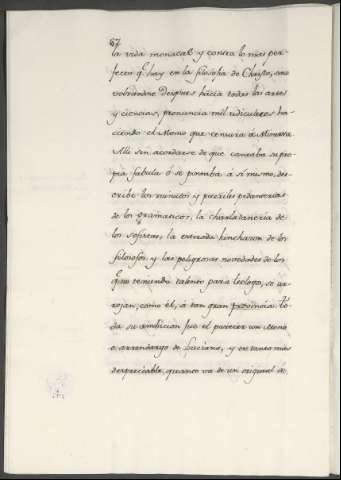 67
la vida monacal y contra lo mas per-
fecto q.e hay en la filosofia de Christo, como
volviendose despues hacia todas las artes
y ciencias, pronuncia mil ridiculeces ha-
ciendo el Momo que censura á Minerva
Alli sin acordarse de que contaba su pro-
pia fabula ó se pintaba á si mismo, des-
cribe los minutos y pueriles pedanterias
de los gramaticos, la charlataneria de
los sofistas, la extremada hinchazon de los
filosofos, y las peligrosas novedades de los
q.e no teniendo talento para teologo, se ar-
rojan, como él, á tan gran provincia. To-
da su ambicion fue el parecer un
o arrendajo de Luciano, y es tanto mas
despreciable, quanto va de un original de